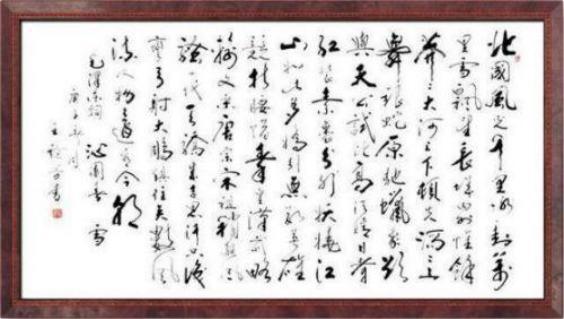 北國風光千里冰封萬
里雪飄望長城內外惟餘
莽莽大河上下頓失滔滔山
舞銀蛇原馳蠟象欲
與天公試比高須晴日看
紅裝素裹分外妖嬈江
山如此多嬌引無數英雄
競折腰惜秦皇漢武略
輸文采唐宗宋祖稍遜風
騷一代天驕成吉思汗只識
彎弓射大鵰俱往矣數風
流人物還看今朝
毛澤東詞 沁園春 雪